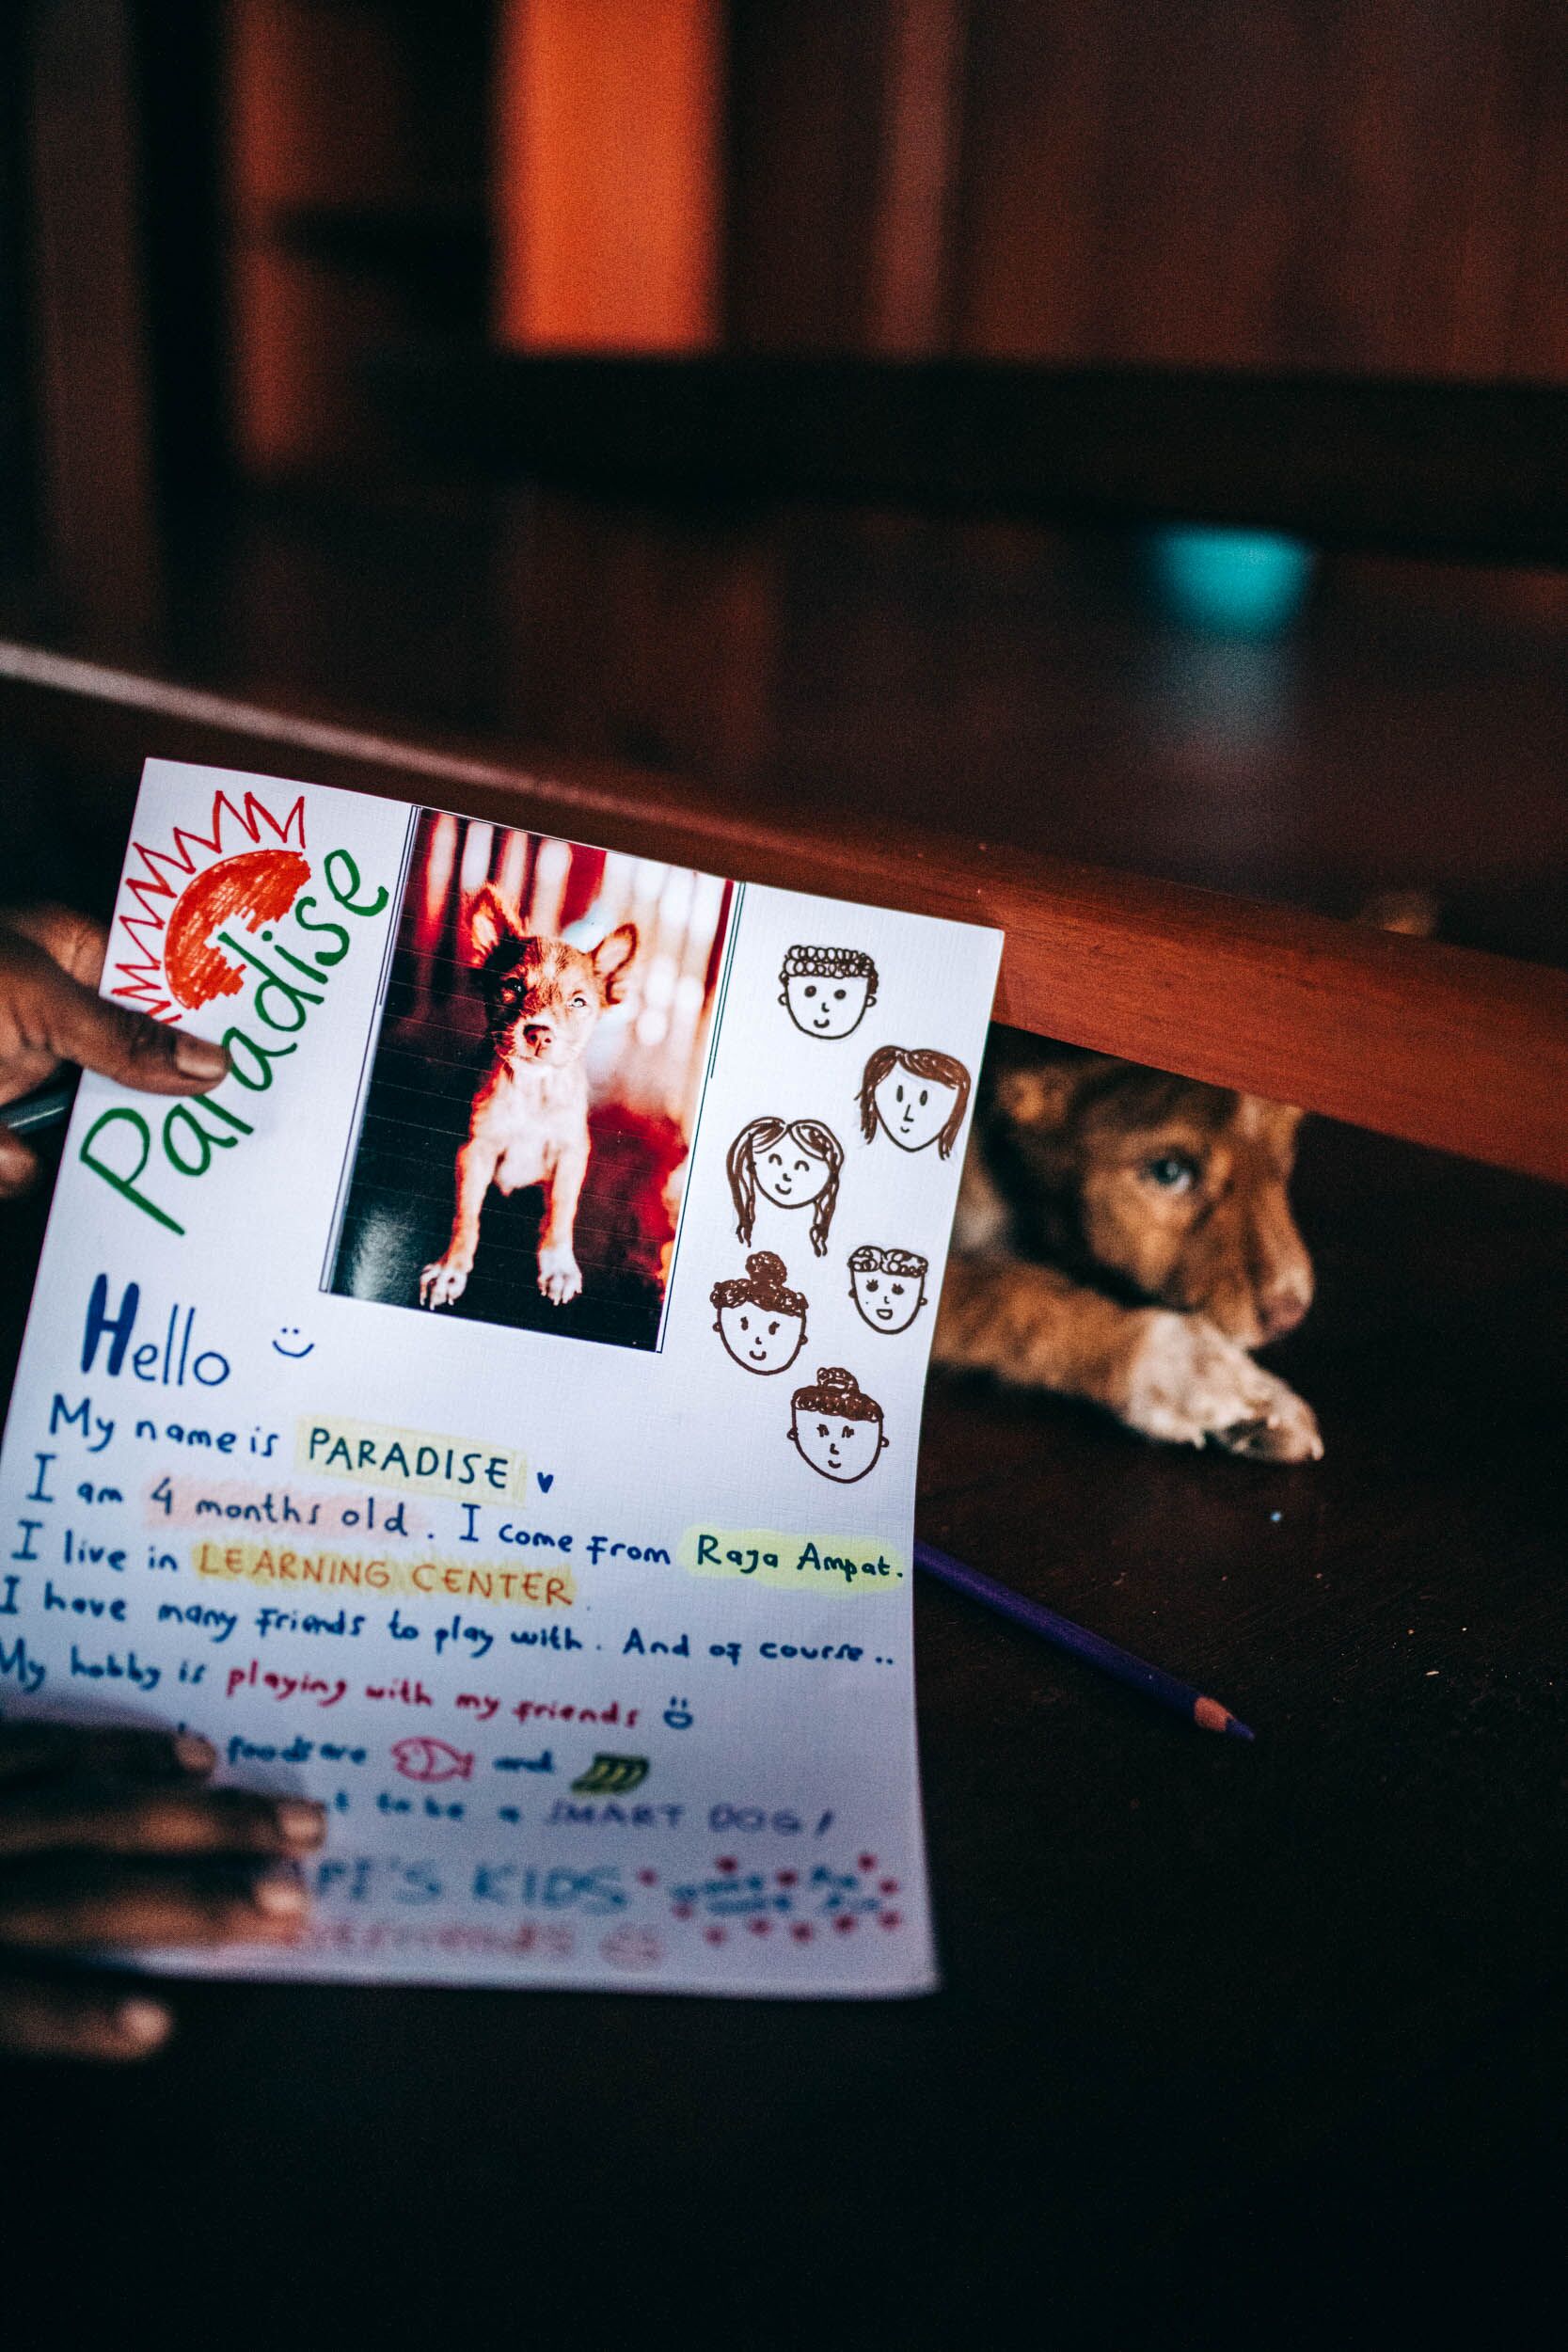 Paradise
Hello
My name is PARADISE
I am 4 months old. I come from Raja Ampat.
I live in LEARNING CENTER
I have many friends to play with. And of course..
My hobby is playing with my friends
foods are and
to be a SMART DOG!
KIDS